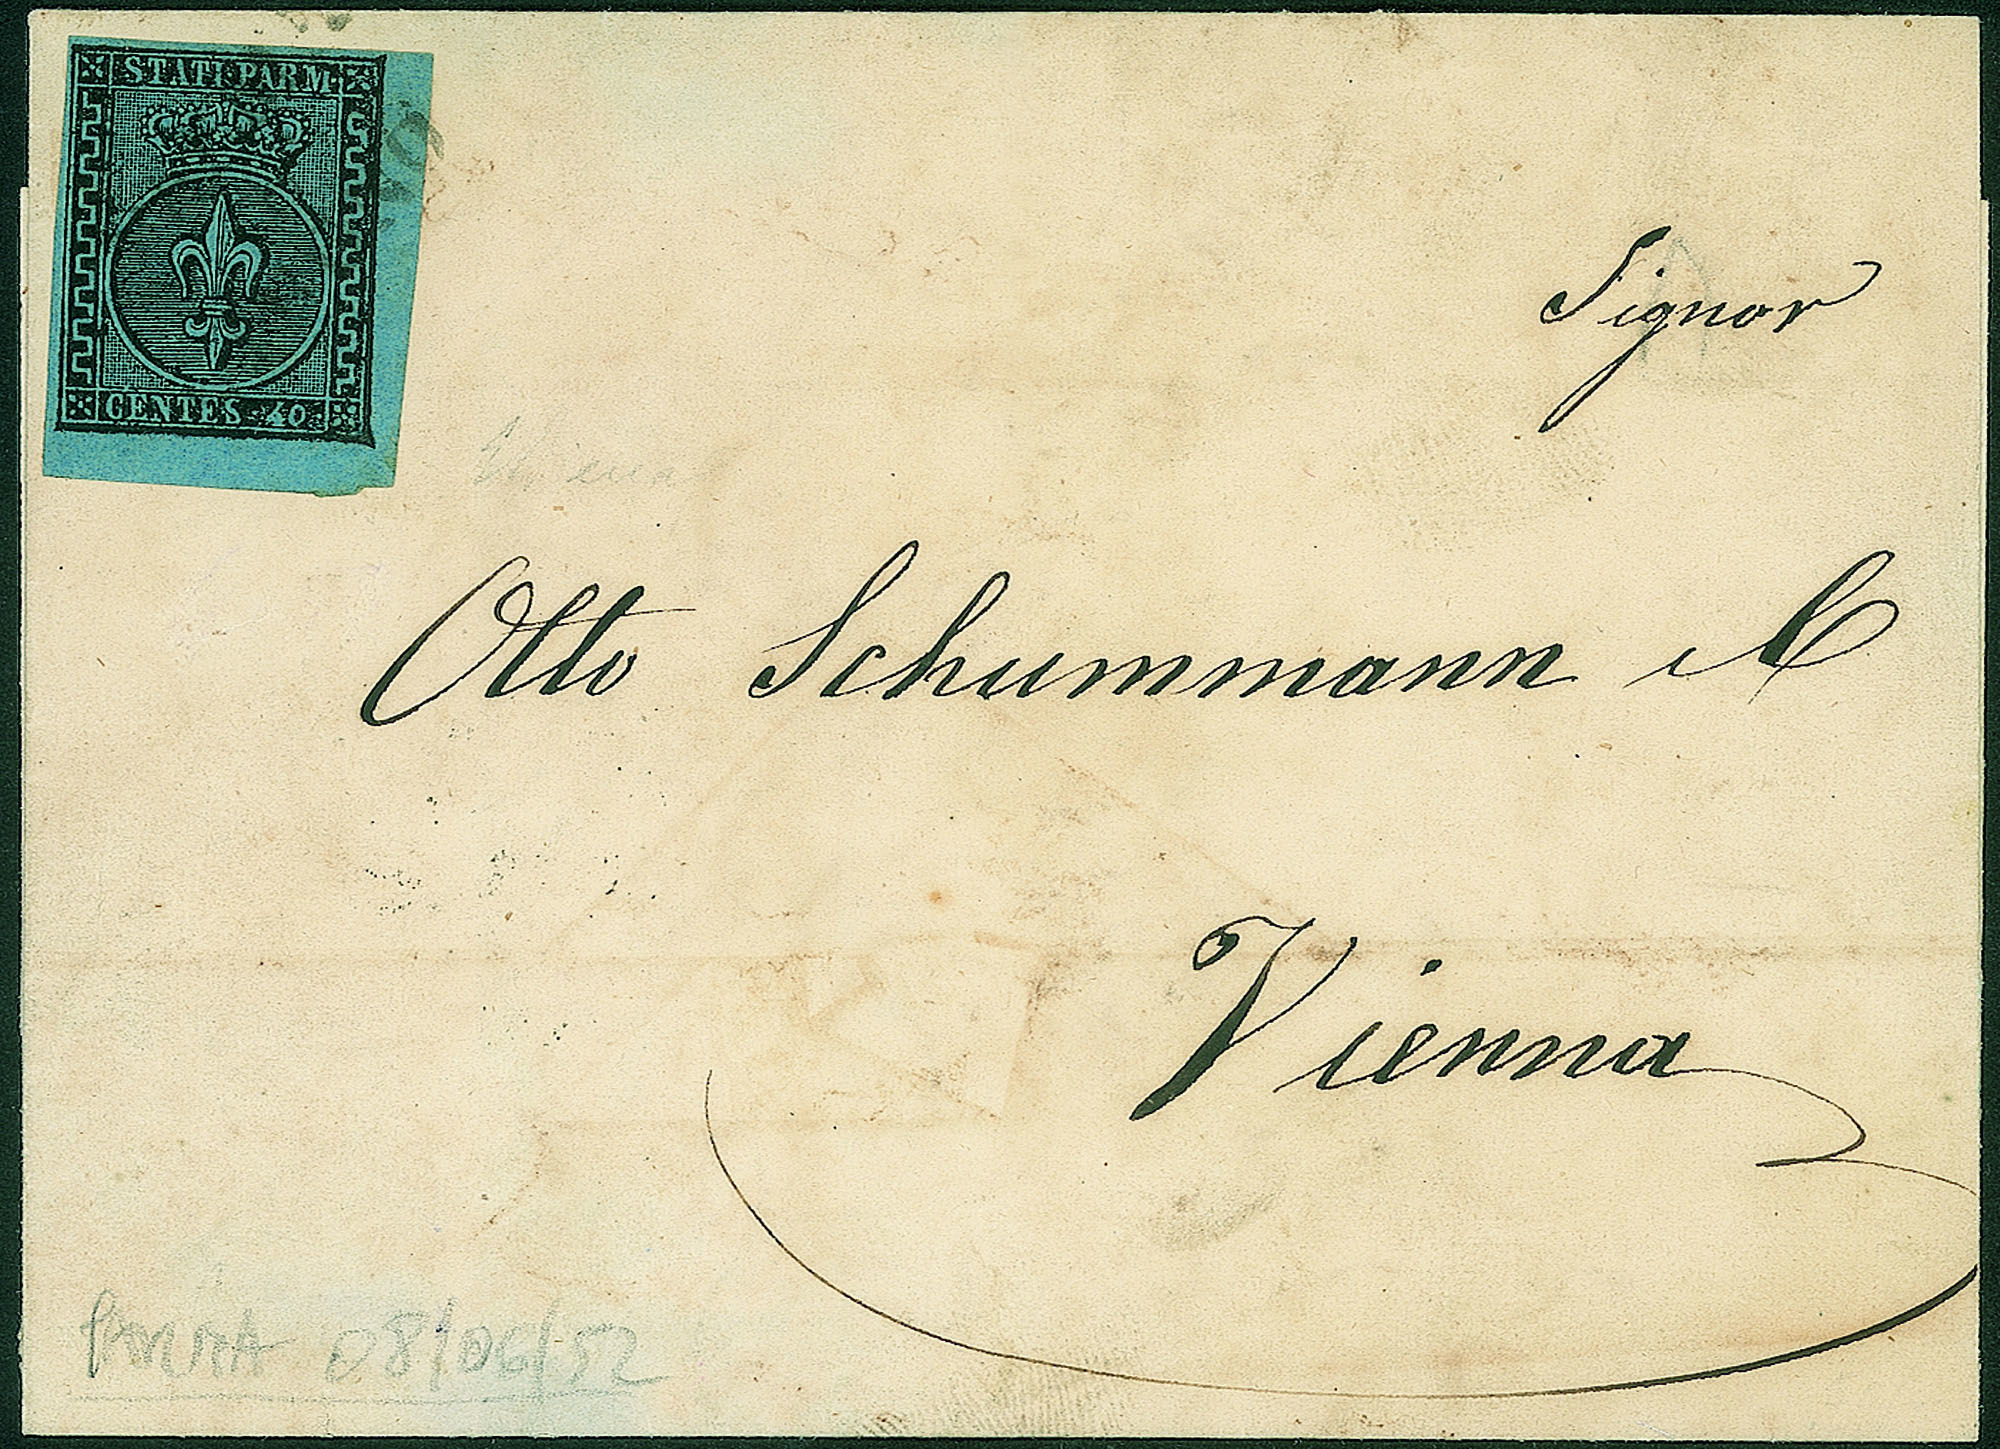 STATI PARM.
CENTES. 40
Signor
Otto Schummann & C
Vienna
PARMA 08/06/52